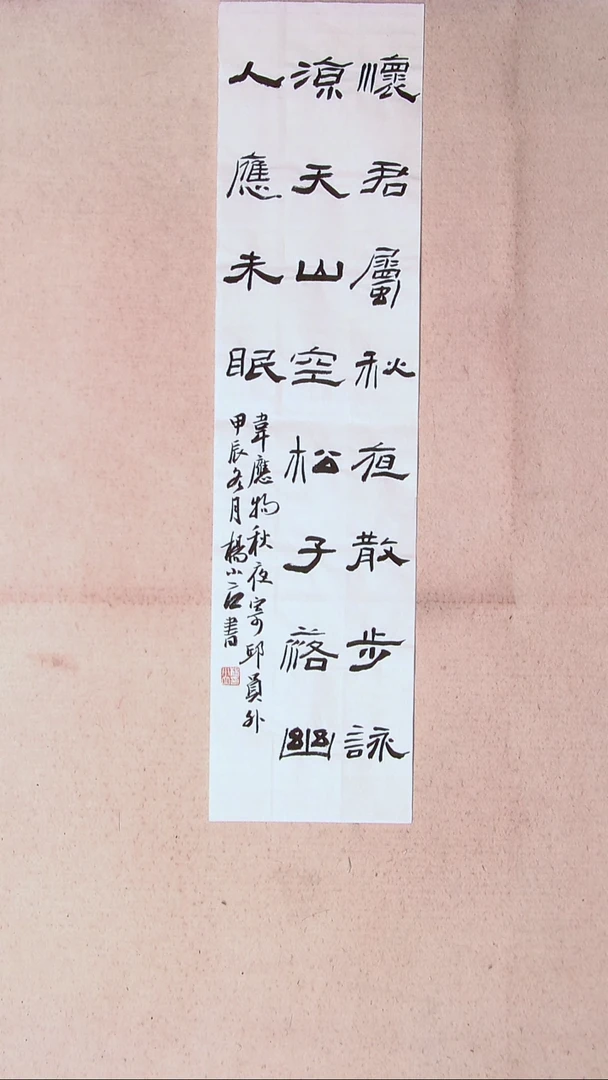 懷君屬秋夜散步詠
涼天山空松子落幽
人應未眠
韋應物秋夜寄邱員外
甲辰冬月楊小書